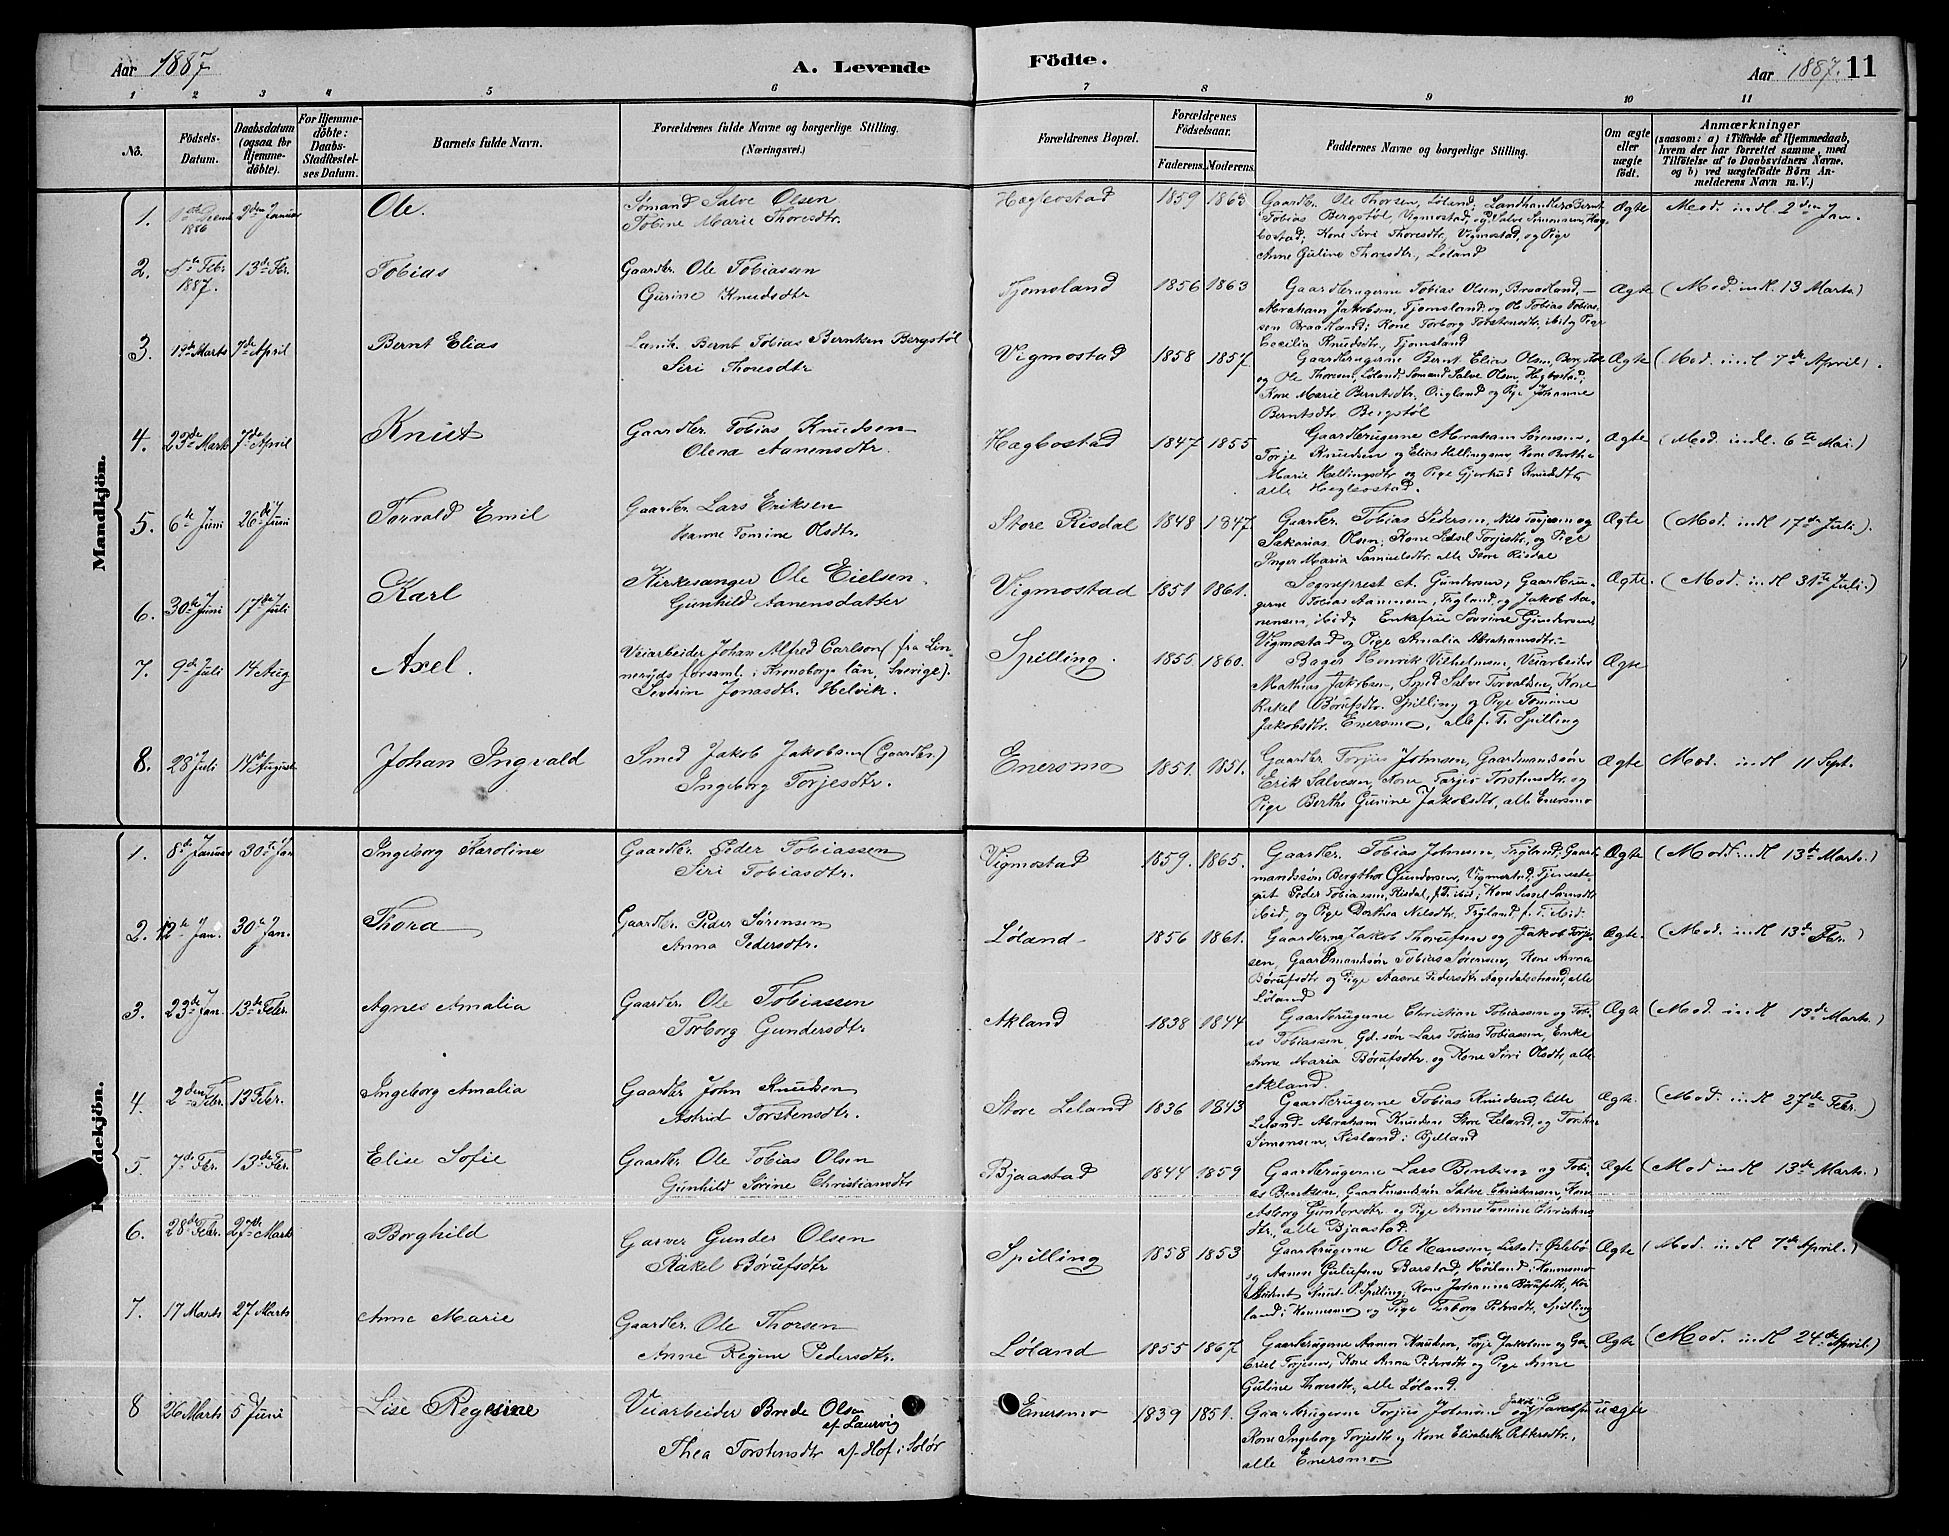 Aar 1887 A. Levende Födte. Aar 1887. 11
1 2 3 4 5 6 7 8 9 10 11
No.
Födsels-Datum.
Daabsdatum (ogsaa for Hjemme-döbte).
For Hjemme-döbte: Daabs-Stadfæstel-ses Datum.
Barnets fulde Navn.
Forældrenes fulde Navne og borgerlige Stilling.
(Næringsvei.)
Forældrenes Bopæl.
Forældrenes Födselsaar.
Faderens. Moderens.
Faddernes Navne og borgerlige Stilling.
Om ægte eller uægte födt.
Anmærkninger
(saasom: a) i Tilfælde af Hjemmedaab,
hvem der har forrettet samme, med
Tilföielse af to Daabsvidners Navne.
og b) ved uægtefödte Börn An-
melderens Navn m. V.)
Mandkjön.
1. 1886 2den Januar Ole. Sömand Salve Olsen
Tobine Marie Thoresdtr.
Hægbostad 1859 1863
Gaardbr. Ole Thorsen, Løland; Landhandler Bernt
Tobias Bergstøl, Vigmostad, og Salve Simonsen, Hæg-
bostad; Kone Siri Thoresdtr, Vigmostad, og Pige
Anne Guline Thoresdtr, Løland
Ægte Mod. indl. 2den Jan.
2. 5te Febr 1887. 13de Fbr. Tobias Gaardbr. Ole Tobiassen
Gurine Knudsdtr
Tjomsland 1856 1863
Gaardbrugerne Tobias Olsen, Braadland,
Abraham Jakobsen, Tjomsland og Ole Tobias Tobias-
sen Braadland; Kone Torborg Torstensdtr, ibid og Pige
Cecilia Knudsdtr, Tjomsland
Ægte (Mod. indl. 13 Marts)
3. 13de Marts 7de April Bernt Elias Landh. Bernt Tobias Berntsen Bergstøl
Siri Thoresdtr
Vigmostad 1858 1857.
Gaardbrugerne Bernt Elias Olsen, Bergstøl
og Ole Thoresen, Løland; Sømand Salve Olsen, Hegbostad,
Kone Marie Berntsdtr, Øigland og Pige Johanne
Berntsdtr Bergstøl
Ægte (Mod. indl. 7de April).
4. 23de Marts 7de April Knut Gaardbr. Tobias Knudsen
Olena Aanensdtr.
Hægbostad 1847 1855
Gaardbrugerne Abraham Sørensen,
Torje Knudsen og Elias Hellingsen, Kone Berthe
Marie Hellingsdtr og Pige Gjertrud Knudsdtr
alle Hegbostad.
Ægte (Mod. indl. 6te Mai.)
5. 6te Juni 26de Juni Torvald Emil Gaardbr Lars Eriksen
Hanne Tomine Olsdtr.
Store Risdal 1848 1847.
Gaardbr. Tobias Pedersen, Nils Torjesen og
Sakarias Olsen, Kone Sidsel Torjesdtr, og Pige
Inger Maria Samuelsdtr. alle Store Risdal
Ægte (Mod. indl 17de Juli).
6. 30te Juni 17de Juli Karl Kirkesanger Ole Eielsen.
Gunhild Aanensdatter
Vigmostad 1851 1861.
Sogneprest A. Gundersen; Gaardbru-
gerne Tobias Aanensen, Tryland og Jakob Aa-
nensen, ibid; Enkefru Sovrine Gundersen
Vigmostad og Pige Amalia Abrahamsdtr.
Ægte. (Mod. indl 31te Juli.)
7. 9de Juli 14 Aug Axel. Veiarbeider Johan Alfred Carlson (fra Lin-
neryds forsaml. i Kronobergs län, Sverige).
Sevlsin Jonasdtr. Helvik.
Spilling. 1855 1860.
Bager Henrik Vilhelmsen, Veiarbeider
Mathias Jakobsen, Smed Salve Torvaldsen, Kone
Rakel Børufsdtr. Spilling og Pige Tomine
Jakobsdtr. Enersmo, alle f. T. Spilling
Ægte
8. 28 Juli 14de August Johan Ingvald Smed Jakob Jakobsen (Gaardbr.)
Ingeborg Torjesdtr.
Enersmo 1851. 1851.
Gaardbr Torjus Johnsen, Gaardmandssøn
Erik Salvesen, Kone Torjer Torstensdtr. og
Pige Berthe Gurine Jakobsdtr, alle Enersmo
Ægte Mod. indl 11 Sept.
Kvindekjön.
1. 8de Januar 30te Jan Ingeborg Karoline Gaardbr. Peder Tobiassen
Siri Tobiasdtr.
Vigmostad 1859. 1865.
Gaardbr. Tobias Johnsen, Tryland; Gaard-
mandssøn Bergthor Gundersen, Vigmostad; Tjeneste-
gut Peder Tobiassen, Risdal, f. T. ibid; Kone Sissel Larsdtr
ibid, og Pige Dorthea Nilsdtr, Tryland f. T. ibid.
Ægte (Mod. indl 13de Marts.)
2. 12te Jan. 30te Jan. Thora Gaardbr Peder Sørensen
Anna Pedersdtr.
Løland 1856 1861.
Gaardbrne Jakob Thorufsen og Jakob Torje-
sen, Gaardmandssøn Tobias Sørensen, Kone Anna
Børufsdtr og Pige Aasne Pedersdtr Aagedalsstrand, alle
Løland
Ægte. (Mod. indl 13de Fbr.)
3. 23de Jan. 13de Febr. Agnes Amalia Gaardbr. Ole Tobiassen
Torborg Gundersdtr
Akland 1838 1844
Gaardbrugerne Christian Tobiassen og Tobi-
as Tobiassen, Gd. søn Lars Tobias Tobiassen, Enke
Anne Maria Børufsdtr. og Kone Siri Olsdtr, alle
Akland.
Ægte (Mod. indl 13de Marts.)
4. 2den Febr. 13 Febr. Ingeborg Amalia Gaardbr John Knudsen
Astrid Torstensdtr.
Store Leland 1836 1843
Gaardbrugerne Tobias Knudsen, lille
Leland. Abraham Knudsen Store Leland, og Torsten
Simonsen, Risland i Bjelland
Ægte. (Mod. indl 27de Febr.)
5. 7de Fbr. 13de Fbr. Elise Sofie Gaardbr Ole Tobias Olsen
Gunhild Sørine Christiansdtr
Bjaastad 1844 1859
Gaardbrugerne Lars Bentsen og Tobi-
as Bentsen, Gaardmandssøn Salve Christensen, Kone
Asborg Gundersdtr og Pige Anne Tomine Christens-
dtr, alle Bjaastad.
Ægte (Mod indl 13de Marts.)
6. 28de Febr. 27de Marts Borghild Garver Gunder Olsen
Rakel Børufsdtr
Spilling 1858 1853
Gaardbrugerne Ole Hansen, Listad i Øslebø
og Aanen Gulufsen Barstad, Høiland i Konnesmo
Student Knut P. Spilling, Kone Johanna Børufsdtr, Høi-
land i Konnesmo og Pige Torborg Pedersdtr, Spilling
Ægte (Mod. indl 7de April.)
7. 17 Marts 27 Marts Anne Marie Gaardbr. Ole Thorsen
Anne Regine Pedersdtr.
Løland 1855 1867
Gaardbrugerne Aanen Knudsen, Torje Jakobsen og Ga-
briel Torjesen, Kone Anna Pedersdtr og Pige Anne
Guline Thoresdtr, alle Løland.
Ægte (Mod. indl 24de April.)
8 26 Marts 5 Juni Lise Regine Veiarbeider Brede Olsen
af Laurvig
Thea Torstensdtr af Hof i Solør
Enersmo 1839 1851.
Gaardbrugerne Torjus Johnsen og Jakob
Kone Ingeborg Torjesdtr og Kone Elisabeth Pettersdtr,
alle Enersmo
uægte